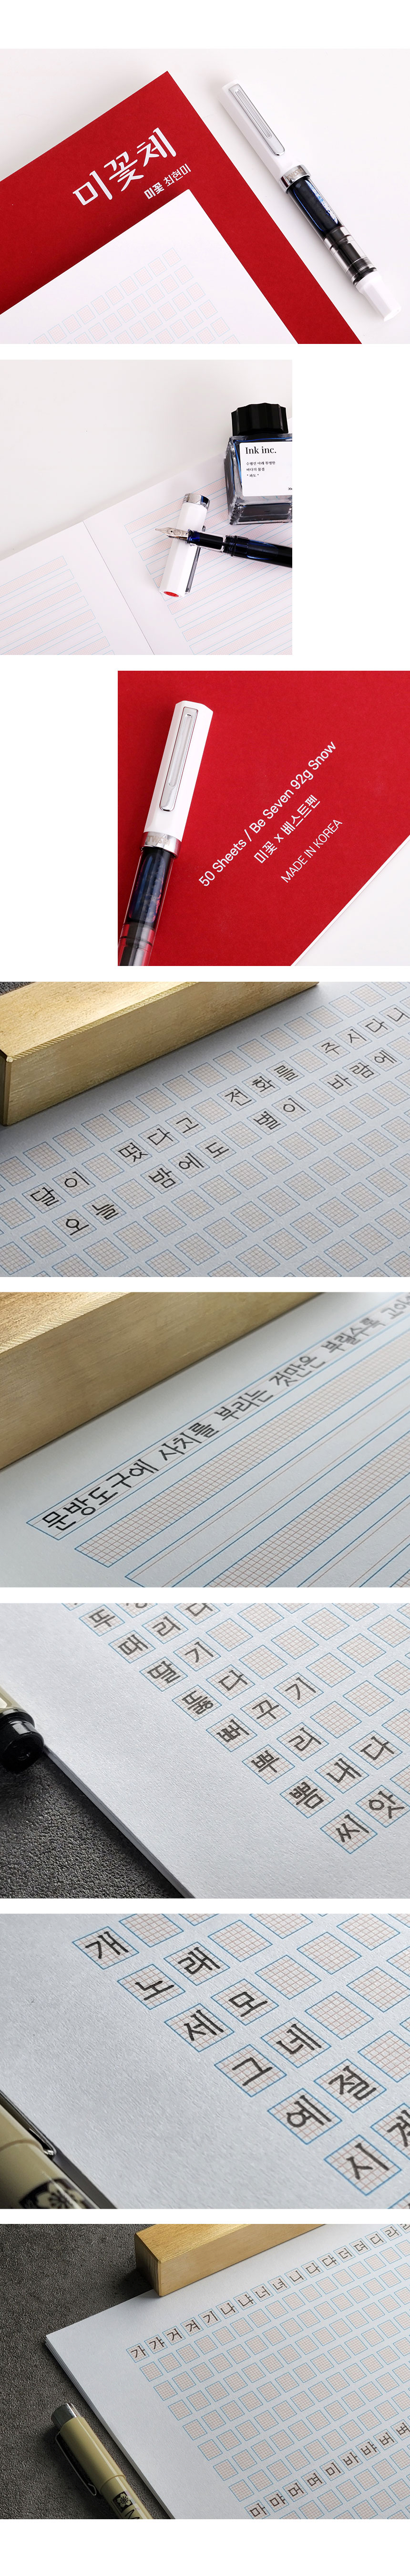 미꽃체
미꽃 최현미
Ink inc.
50 Sheets / Be Seven 92g Snow
미꽃 x 베스트펜
MADE IN KOREA
달이 떴다고 전화를 주시다니
오늘 밤에도 별이 바람에
문방도구에 사치를 부리는 것만은 부릴수록
때리다
딸기
뚫다
뻐꾸기
뿌리
뽐내다
씨앗
개
노래
세모
그네
예절
시계
가 갸 거 겨 기 나 냐 너 녀 니 다 댜 더 뎌 디 라
마 먀 머 며 미 바 뱌 버 벼